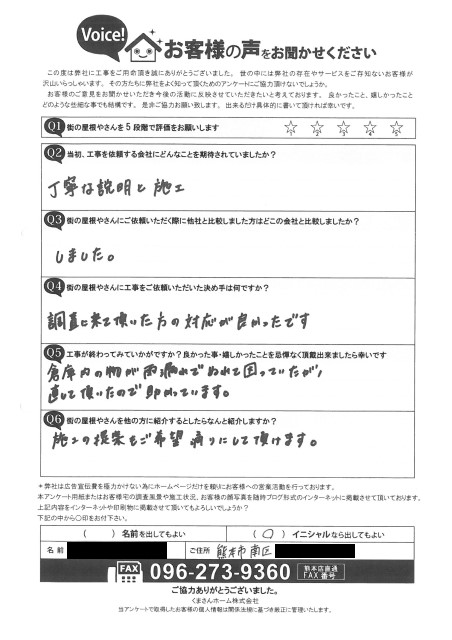 Voice!
お客様の声をお聞かせください
この度は弊社に工事をご用命頂き誠にありがとうございました。 世の中には弊社の存在やサービスをご存知ないお客様が
沢山いらっしゃいます。 その方たちに弊社をよく知って頂くためのアンケートにご協力頂けないでしょうか。
お客様のご意見をお聞かせいただき今後の活動に反映させていただきたいと考えております。 良かったこと、嬉しかったこと
どのような些細な事でも結構です。 是非ご協力お願い致します。 出来るだけ具体的に書いて頂ければ幸いです。
Q1 街の屋根やさんを5段階で評価をお願いします
1 2 3 4 5
Q2 当初、工事を依頼する会社にどんなことを期待されていましたか?
丁寧な説明と施工
Q3 街の屋根やさんにご依頼いただく際に他社と比較しました方はどこの会社と比較しましたか?
しました。
Q4 街の屋根やさんに工事をご依頼いただいた決め手は何ですか?
調査に来て頂いた方の対応が良かったです
Q5 工事が終わってみていかがですか?良かった事・嬉しかったことを忌憚なく頂戴出来ましたら幸いです
倉庫内の物が雨漏れでぬれて困っていたが、
直して頂いたので助かっています。
Q6 街の屋根やさんを他の方に紹介するとしたらなんと紹介しますか?
施工の提案もご希望通りにして頂けます。
＊弊社は広告宣伝費を極力かけない為にホームページだけを頼りにお客様への営業活動を行っております。
本アンケート用紙またはお客様宅の調査風景や施工状況、お客様の顔写真を随時ブログ形式のインターネットに掲載させて頂いております。
上記内容をインターネットや印刷物に掲載させて頂いてもよろしいでしょうか?
下記の中から○印をお付下さい。
( ) 名前を出してもよい
( ○ ) イニシャルなら出してもよい
名前
ご住所 熊本市南区
FAX 096-273-9360 熊本店直通 FAX番号
ご協力ありがとうございました。
くまさんホーム株式会社
当アンケートで取得したお客様の個人情報は関係法規に基づき厳正に管理いたします。